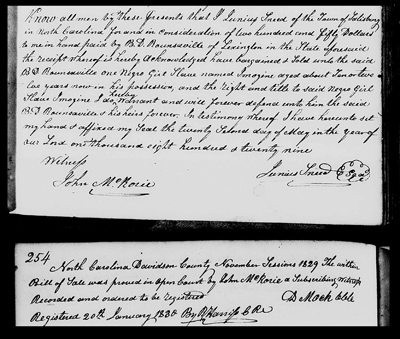 Know all men by these Presents that I Junius Sneed of the Town of Salisbury
in North Carolina for and in consideration of two hundred and fifty Dollars
to me in hand paid by B.D. Rounsaville of Lexington in the State aforesaid
the receipt whereof is hereby Acknowledged have bargained & Sold unto the said
B.D Rounsaville one Negro Girl Slave named Imogine aged about Ten or twelve
years now in his possession, and the right and title to said Negro Girl
Slave Imogine I do hereby Warrant and will forever defend unto him the said
B.D Rounsaville & his heirs forever. In testimony whereof I have hereunto set
my hand & affixed my Seal the twenty Second day of May in the year of
our Lord one thousand eight hundred & twenty nine
Witness
Junius Sneed Seal
John McRorie
254
North Carolina Davidson County November Sessions 1829 The within
Bill of Sale was proved in Open Court by John McRorie a Subscribing Witness
Recorded and ordered to be registered
D Mock Clk
Registered 20th January 1830 By